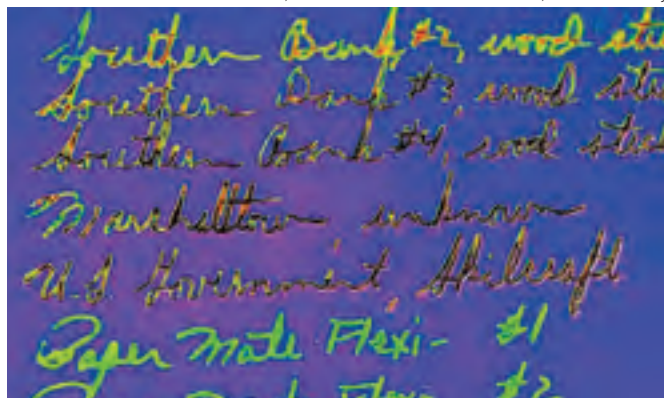 Southern Bank #2, wood
Southern Bank #3, wood
Southern Bank #4, wood
Marshalltown, unknown
U.S. Government, Skilcraft
Paper Mate Flexi- #1
#2